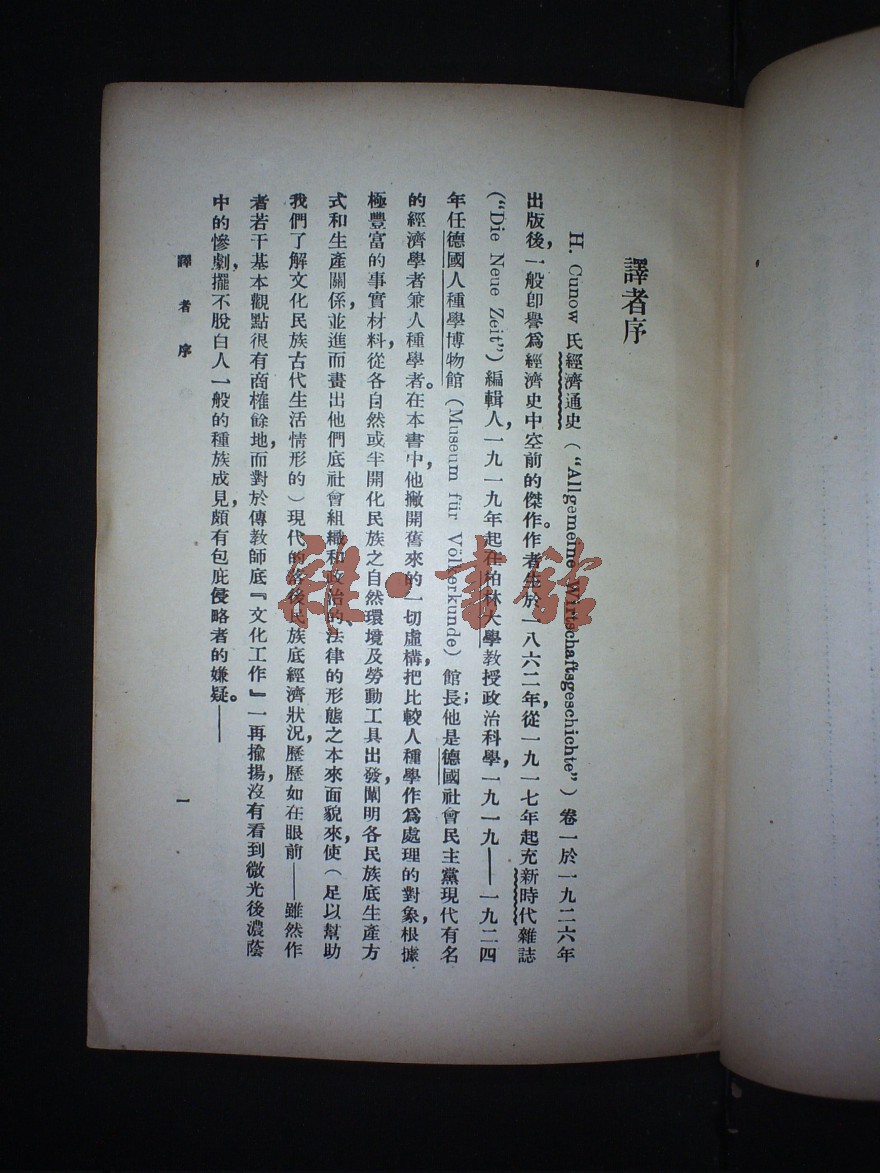 譯者序
H. Cunow 氏經濟通史（“Allgemeine Wirtschaftsgeschichte”）卷一於一九二六年
出版後，一般卽譽爲經濟史中空前的傑作。作者生於一八六二年，從一九一七年起充新時代雜誌
（“Die Neue Zeit”）編輯人，一九一九年起在柏林大學教授政治科學，一九一九——一九二四
年任德國人種學博物館（Museum für Völkerkunde）館長；他是德國社會民主黨現代有名
的經濟學者兼人種學者。在本書中，他撇開舊來的一切虛構，把比較人種學作爲處理的對象，根據
極豐富的事實材料，從各自然或半開化民族之自然環境及勞動工具出發，闡明各民族底生產方
式和生產關係，並進而畫出他們底社會組織和政治的、法律的形態之本來面貌來，使（足以幫助
我們了解文化民族古代生活情形的）現代的落後民族底經濟狀況，歷歷如在眼前——雖然作
者若干基本觀點很有商榷餘地，而對於傳教師底『文化工作』一再揄揚，沒有看到微光後濃蔭
中的慘劇，擺不脫白人一般的種族成見，頗有包庇侵略者的嫌疑。——
譯者序
一
雜·書館